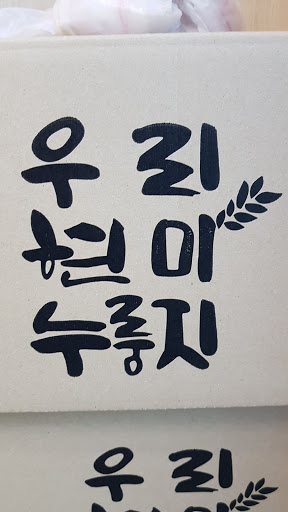 우리
현미
누룽지
우리